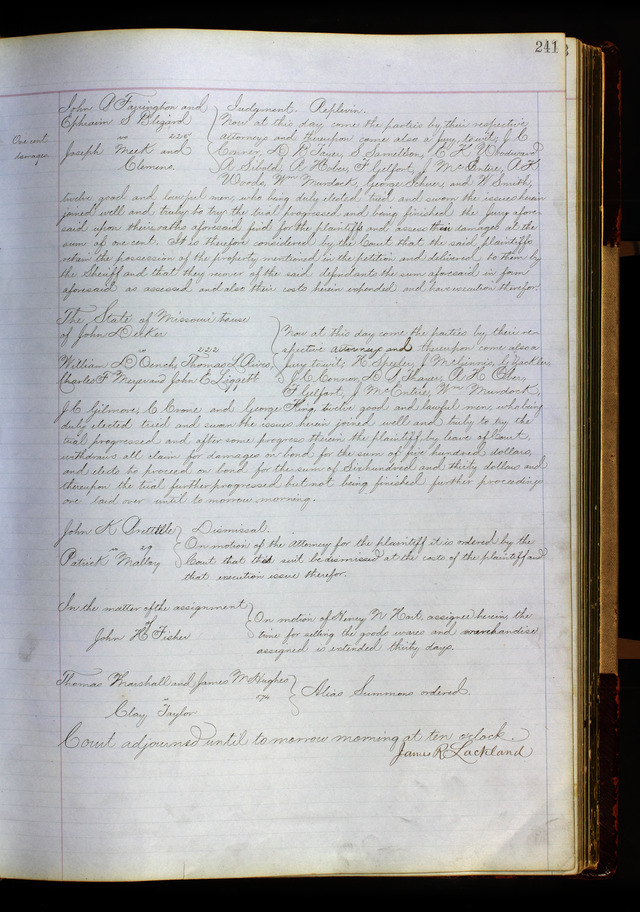 241
John A Farrington and } Judgment. Replevin.
Ephraim S Blezard Now at this day come the parties by their respective
One cent damages
vs 225 attorneys and thereupon come also a jury towit; J C
Joseph Meek and Connor, D P Tayer, S Samellson, C H Woodward
Clemens. A Sibold, R H Ober, F Gelfort, J McEntire, A H
Woods, Wm Murdock, George Schuer, and W Smith,
twelve good and lawful men, who being duly elected tried and sworn the issues herein
joined well and truly to try the trial progressed and being finished the jury afore
said upon their oaths aforesaid find for the plaintiffs and assess their damages at the
sum of one cent. It is therefore considered by the Court that the said plaintiffs
retain the possession of the property mentioned in the petition and delivered to them by
the Sheriff and that they recover of the said defendants the sum aforesaid in form
aforesaid as assessed and also their costs herein expended and have execution therefor.
The State of Missouri to use
of John Decker } Now at this day come the parties by their re-
222 spective attorneys and thereupon come also a
William D Oench, Thomas L Rives, jury towit; H Speyler, J McGinnis, C Yackler,
Charles F Meyer and John E Liggett J C Connor, D P Thayer, R H Ober,
F Gelfort, J McEntire, Wm Murdock,
J C Gilmore, C Crone, and George King, twelve good and lawful men, who being
duly elected tried and sworn the issues herein joined well and truly to try the
trial progressed and after some progress therein the plaintiff by leave of Court,
withdraws all claim for damages on bond for the sum of five hundred dollars,
and elects to proceed on bond for the sum of Six hundred and thirty dollars and
thereupon the trial further progressed but not being finished further proceedings
are laid over until to morrow morning.
John K Prettile } Dismissal.
vs 29 On motion of the attorney for the plaintiff it is ordered by the
Patrick Malloy Court that this suit be dismissed at the costs of the plaintiff and
that execution issue therefor.
In the matter of the assignment
of } On motion of Henry N Hart, assignee herein, the
John H Fisher time for selling the goods wares and merchandise
assigned is extended thirty days.
Thomas Marshall and James M Hughes
vs } Alias Summons ordered.
Clay Taylor
Court adjourned until to morrow morning at ten o'clock.
James R Lackland